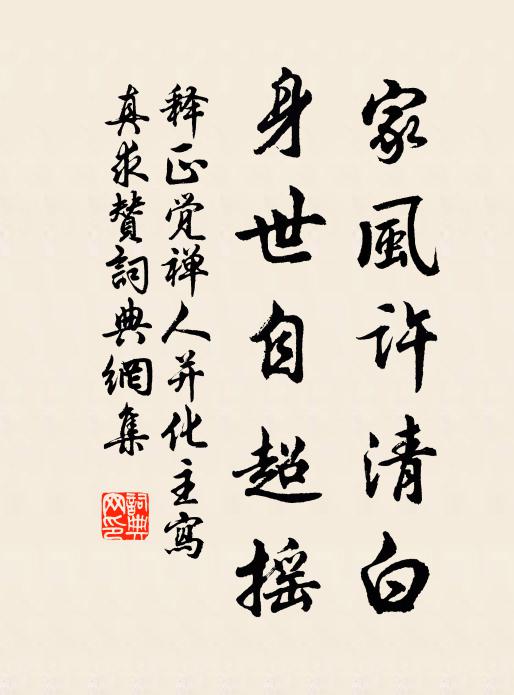 家風許清白
身世自超摇
释正觉禅人并化主寫
真求贊詞典網集
詞典网印